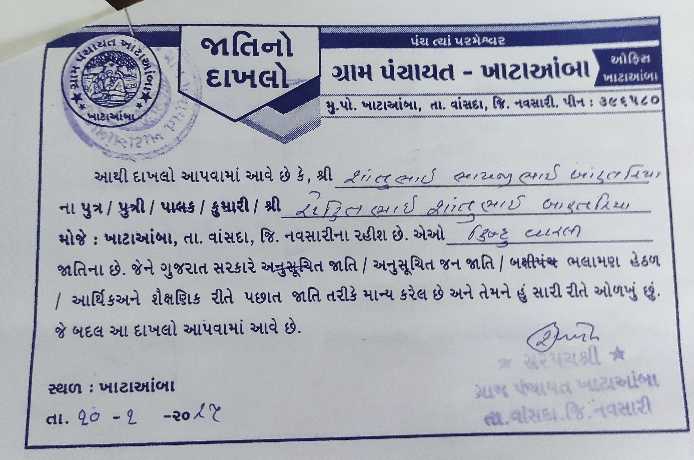 ગ્રામ પંચાયત ખાટાઆંબા
ખાટાઆંબા
જાતિનો
દાખલો
પંચ ત્યાં પરમેશ્વર
ગ્રામ પંચાયત - ખાટાઆંબા
ઓફિસ
ખાટાઆંબા
મુ.પો. ખાટાઆંબા, તા. વાંસદા, જિ. નવસારી. પીન : ૩૯૬૫૮૦
આથી દાખલો આપવામાં આવે છે કે, શ્રી શાંતુભાઈ
ના પુત્ર / પુત્રી / પાલક / કુમારી / શ્રી શાંતુભાઈ
મોજે : ખાટાઆંબા, તા. વાંસદા, જિ. નવસારીના રહીશ છે. એઓ હિન્દુ
જાતિના છે. જેને ગુજરાત સરકારે અનુસૂચિત જાતિ / અનુસૂચિત જન જાતિ / બક્ષીપંચ ભલામણ હેઠળ
/ આર્થિકઅને શૈક્ષણિક રીતે પછાત જાતિ તરીકે માન્ય કરેલ છે અને તેમને હું સારી રીતે ઓળખું છું.
જે બદલ આ દાખલો આપવામાં આવે છે.
સરપંચશ્રી
સ્થળ : ખાટાઆંબા
ગ્રામ પંચાયત ખાટાઆંબા
તા. ૧૦ - ૨ -૨૦
તા.વાંસદા.જિ.નવસારી